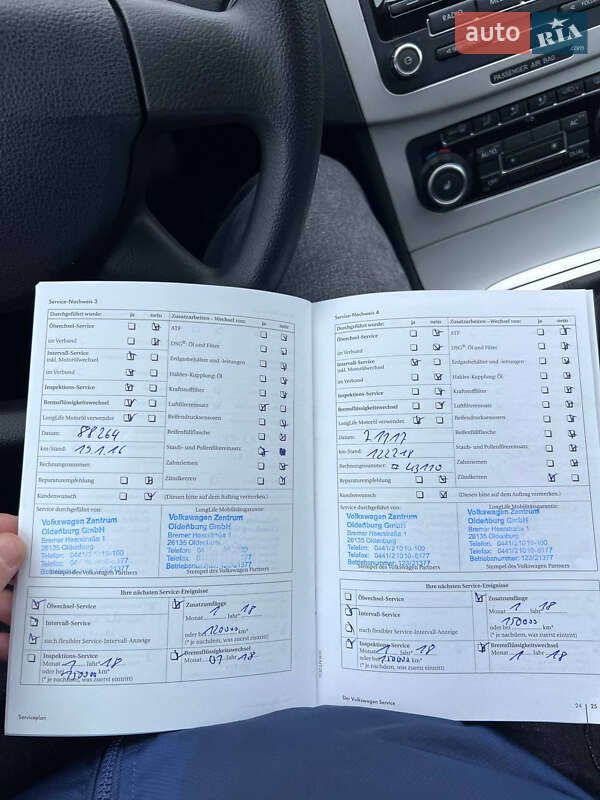 RADIO
auto RIA .com
PASSENGER AIR BAG
AUTO
AC
OFF
DUAL
Service-Nachweis 3
Durchgeführt wurde: ja nein
Zusatzarbeiten – Wechsel von: ja nein
Ölwechsel-Service
ATF
im Verbund
DSG®: Öl und Filter
Intervall-Service
inkl. Motorölwechsel
Erdgasbehälter und -leitungen
im Verbund
Haldex-Kupplung: Öl
Inspektions-Service
Kraftstofffilter
Bremsflüssigkeitswechsel
Luftfiltereinsatz
LongLife Motoröl verwendet
Reifendruckssensoren
Datum: 88264
Reifenfüllflasche
km-Stand: 19.1.16
Staub- und Pollenfiltereinsatz
Rechnungsnummer:
Zahnriemen
Reparaturempfehlung
Zündkerzen
Kundenwunsch
(Diesen bitte auf dem Auftrag vermerken.)
Service durchgeführt von:
LongLife Mobilitätsgarantie:
Volkswagen Zentrum
Oldenburg GmbH
Bremer Heerstraße 1
26135 Oldenburg
Stempel des Volkswagen Partners
Volkswagen Zentrum
Oldenburg GmbH
Bremer Heerstraße 1
26135 Oldenburg
Stempel des Volkswagen Partners
Ihre nächsten Service-Ereignisse
Ölwechsel-Service
Zusatzumfänge
Monat 1 Jahr* 18
Intervall-Service
oder bei 120000 km*
nach flexibler Service-Intervall-Anzeige
(* je nachdem, was zuerst eintritt)
Inspektions-Service
Monat 1 Jahr* 18
oder bei km*
(* je nachdem, was zuerst eintritt)
Bremsflüssigkeitswechsel
Monat 01 Jahr 18
Serviceplan
Service-Nachweis 4
Durchgeführt wurde: ja nein
Zusatzarbeiten – Wechsel von: ja nein
Ölwechsel-Service
ATF
im Verbund
DSG®: Öl und Filter
Intervall-Service
inkl. Motorölwechsel
Erdgasbehälter und -leitungen
im Verbund
Haldex-Kupplung: Öl
Inspektions-Service
Kraftstofffilter
Bremsflüssigkeitswechsel
Luftfiltereinsatz
LongLife Motoröl verwendet
Reifendruckssensoren
Datum:
Reifenfüllflasche
km-Stand: 122218
Staub- und Pollenfiltereinsatz
Rechnungsnummer: 43110
Zahnriemen
Reparaturempfehlung
Zündkerzen
Kundenwunsch
(Diesen bitte auf dem Auftrag vermerken.)
Service durchgeführt von:
LongLife Mobilitätsgarantie:
Volkswagen Zentrum
Oldenburg GmbH
Bremer Heerstraße 1
26135 Oldenburg
Telefon: 0441/21010-100
Betriebsnummer: 123/21377
Stempel des Volkswagen Partners
Volkswagen Zentrum
Oldenburg GmbH
Bremer Heerstraße 1
26135 Oldenburg
Telefon: 0441/21010-100
Betriebsnummer: 123/21377
Stempel des Volkswagen Partners
Ihre nächsten Service-Ereignisse
Ölwechsel-Service
Zusatzumfänge
Monat 1 Jahr* 18
Intervall-Service
oder bei 150000 km*
nach flexibler Service-Intervall-Anzeige
(* je nachdem, was zuerst eintritt)
Inspektions-Service
Monat 1 Jahr* 18
oder bei 150000 km*
(* je nachdem, was zuerst eintritt)
Bremsflüssigkeitswechsel
Monat 1 Jahr 18
Der Volkswagen Service
24 25